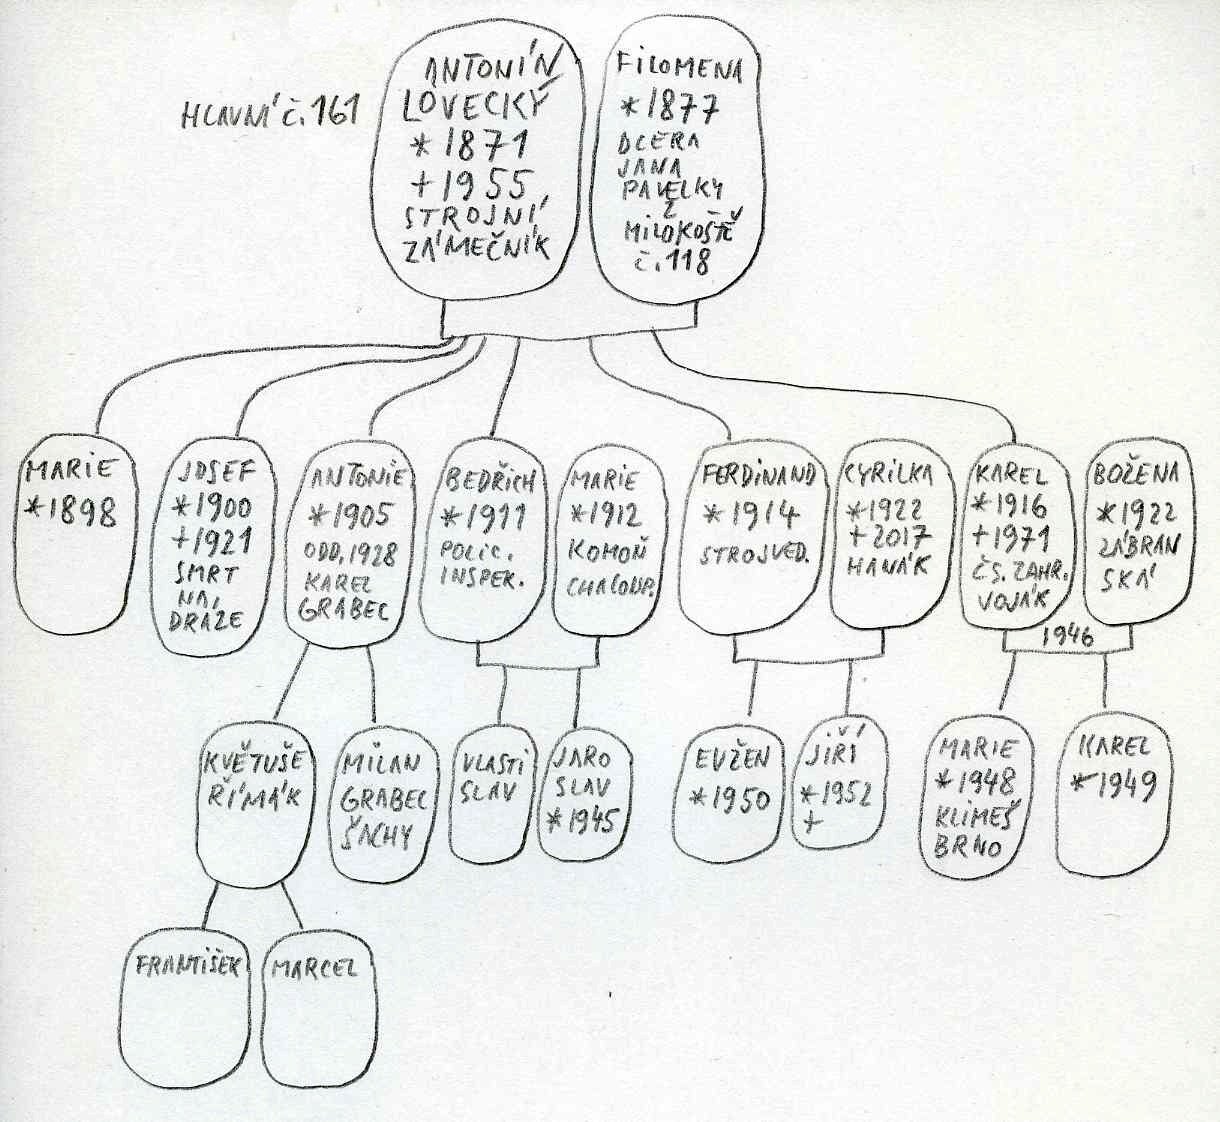 HLAVNÍ č. 161
ANTONÍN
LOVECKÝ
*1871
+1955
STROJNÍ
ZÁMEČNÍK
FILOMENA
*1877
DCERA
JANA
PAVELKY
Z
MILOKOŠTĚ
č. 118
MARIE
*1898
JOSEF
*1900
+1921
SMRT
NA
DRÁZE
ANTONIE
*1905
ODD. 1928
KAREL
GRABEC
BEDŘICH
*1911
POLIC.
INSPEK.
MARIE
*1912
KOMOŇ
CHALOUP.
FERDINAND
*1914
STROJVED.
CYRILKA
*1922
+2017
HANÁK
KAREL
*1916
+1971
ČS. ZAHR.
VOJÁK
BOŽENA
*1922
ZÁBRAN
SKÁ
1946
KVĚTUŠE
ŘIMÁK
MILAN
GRABEC
ŠACHY
VLASTI
SLAV
JARO
SLAV
*1945
EVŽEN
*1950
JIŘÍ
*1952
+
MARIE
*1948
KLIMEŠ
BRNO
KAREL
*1949
FRANTIŠEK
MARCEL